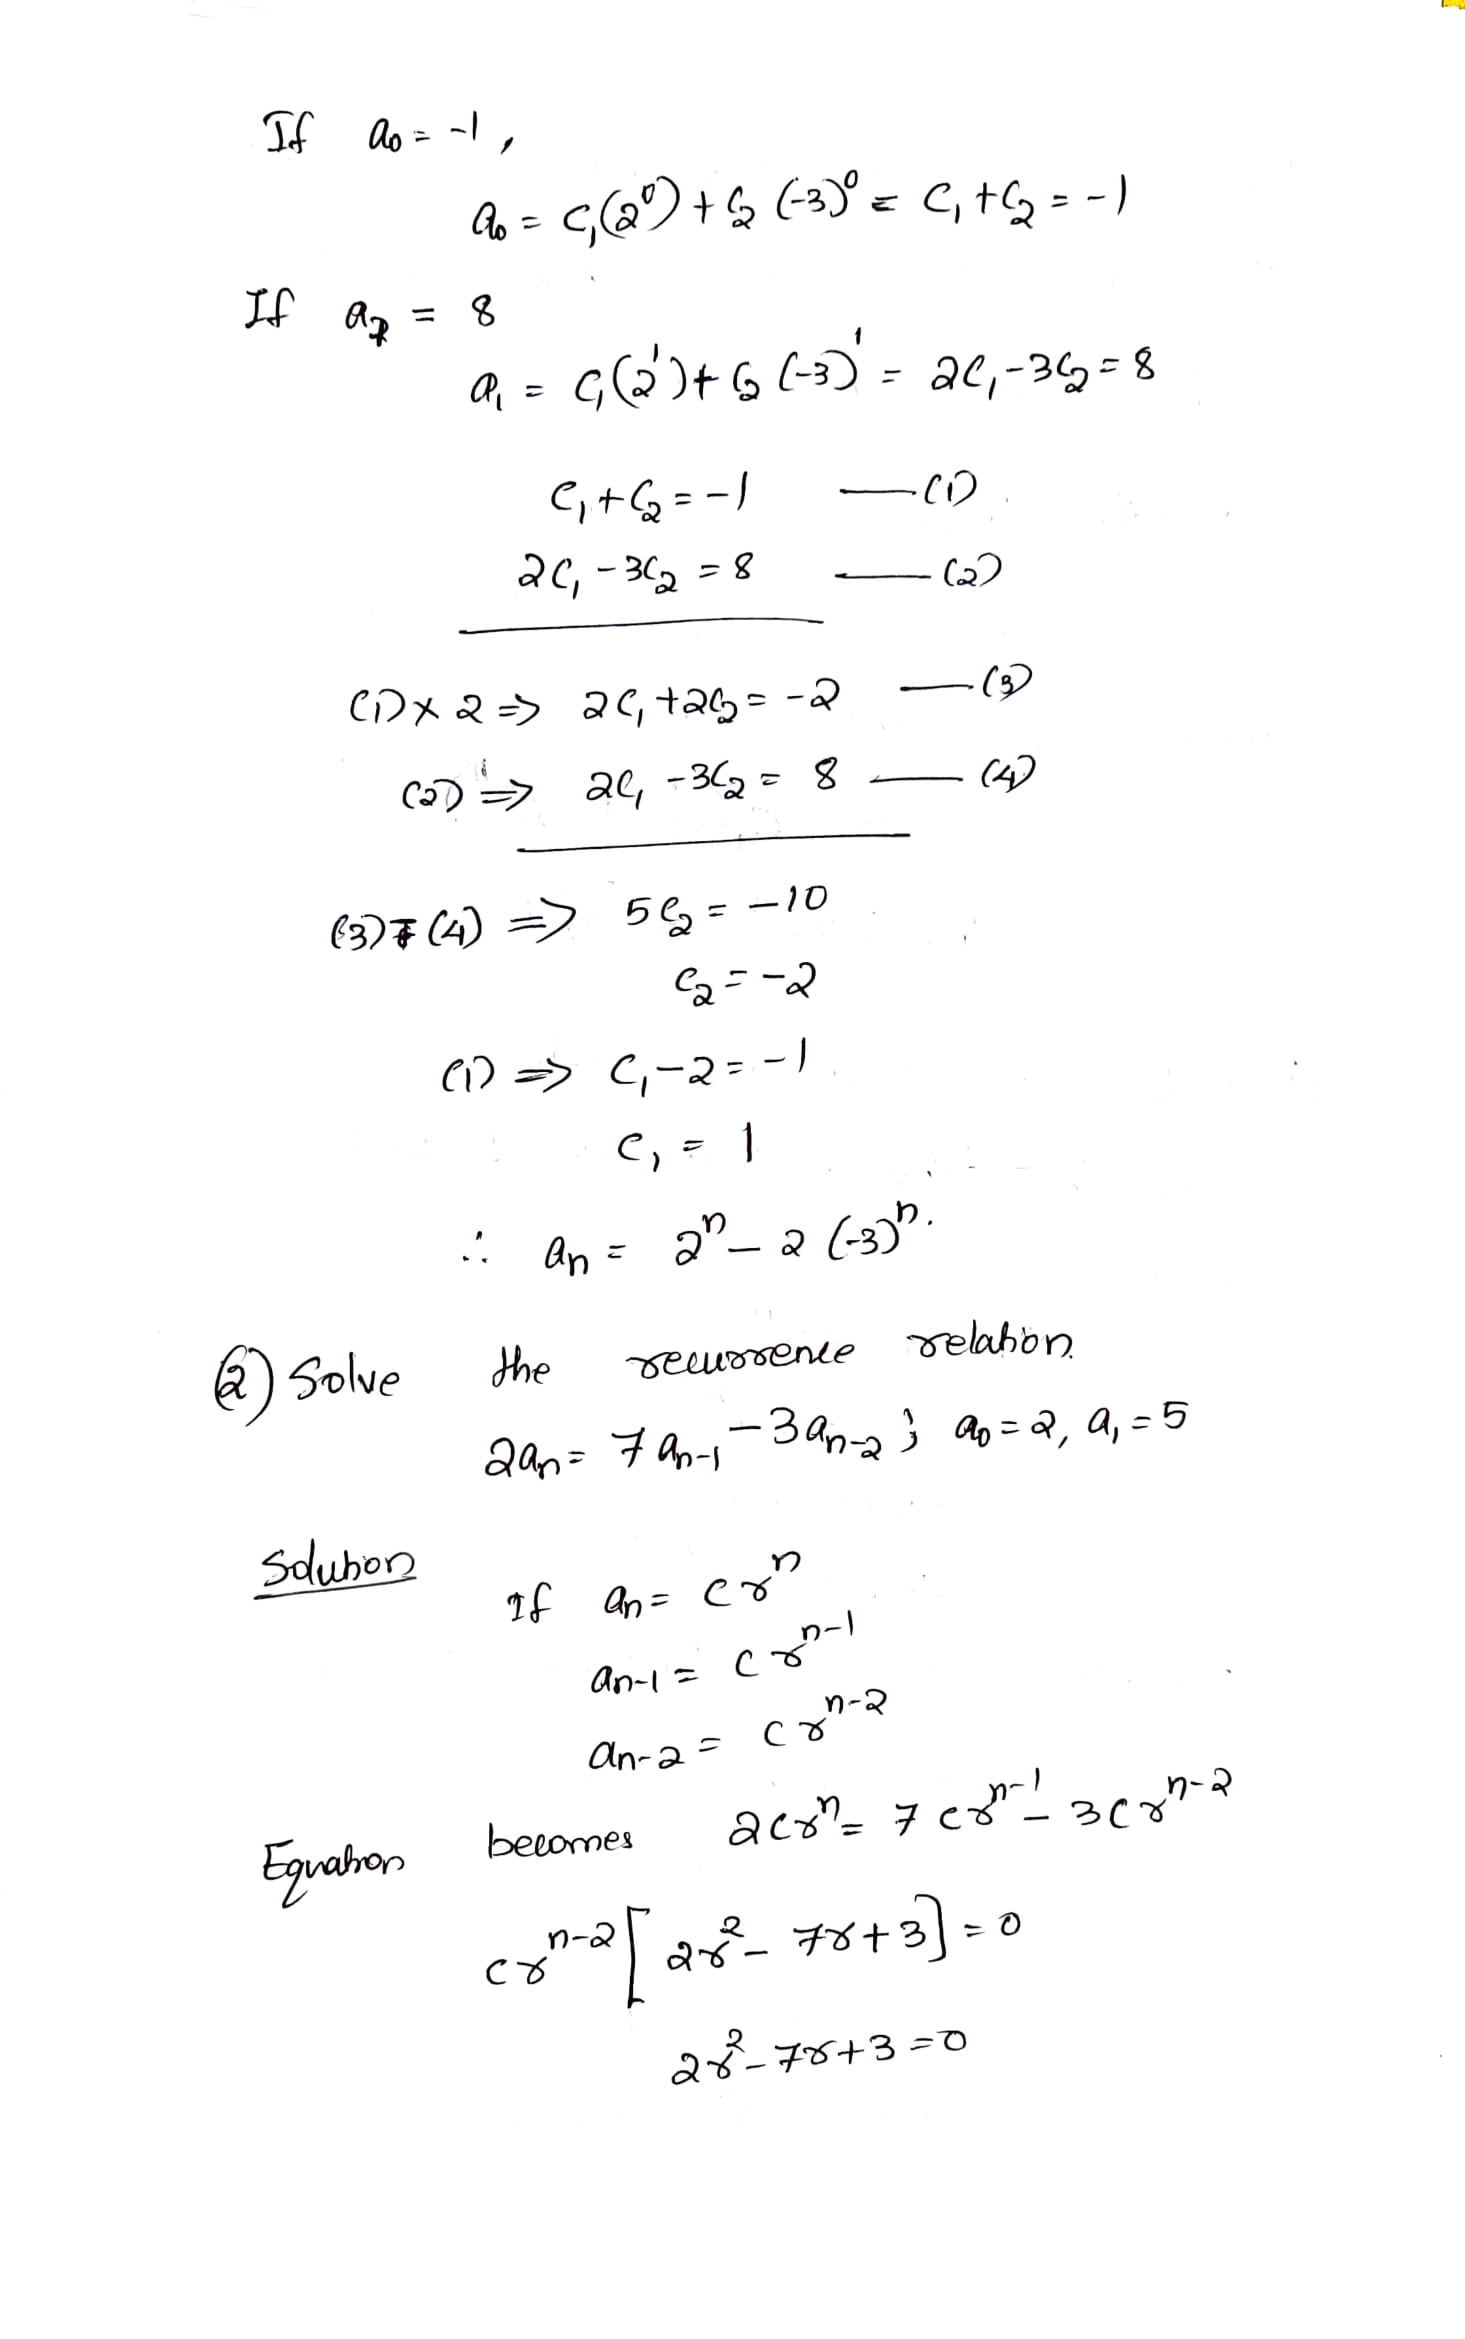 If a₀ = -1,
a₀ = C₁(2⁰) + C₂ (-3)⁰ = C₁ + C₂ = -1
If a₁ = 8
a₁ = C₁(2¹) + C₂ (-3)¹ = 2C₁ - 3C₂ = 8
C₁ + C₂ = -1 — (1)
2C₁ - 3C₂ = 8 — (2)
(1) × 2 ⇒ 2C₁ + 2C₂ = -2 — (3)
(2) ⇒ 2C₁ - 3C₂ = 8 — (4)
(3) - (4) ⇒ 5C₂ = -10
C₂ = -2
(1) ⇒ C₁ - 2 = -1
C₁ = 1
∴ aₙ = 2ⁿ - 2 (-3)ⁿ.
(2) Solve the recurrence relation
2aₙ = 7aₙ₋₁ - 3aₙ₋₂ ; a₀ = 2, a₁ = 5
Solution
If aₙ = c rⁿ
aₙ₋₁ = c rⁿ⁻¹
aₙ₋₂ = c rⁿ⁻²
Equation becomes 2crⁿ = 7crⁿ⁻¹ - 3crⁿ⁻²
crⁿ⁻² [2r² - 7r + 3] = 0
2r² - 7r + 3 = 0